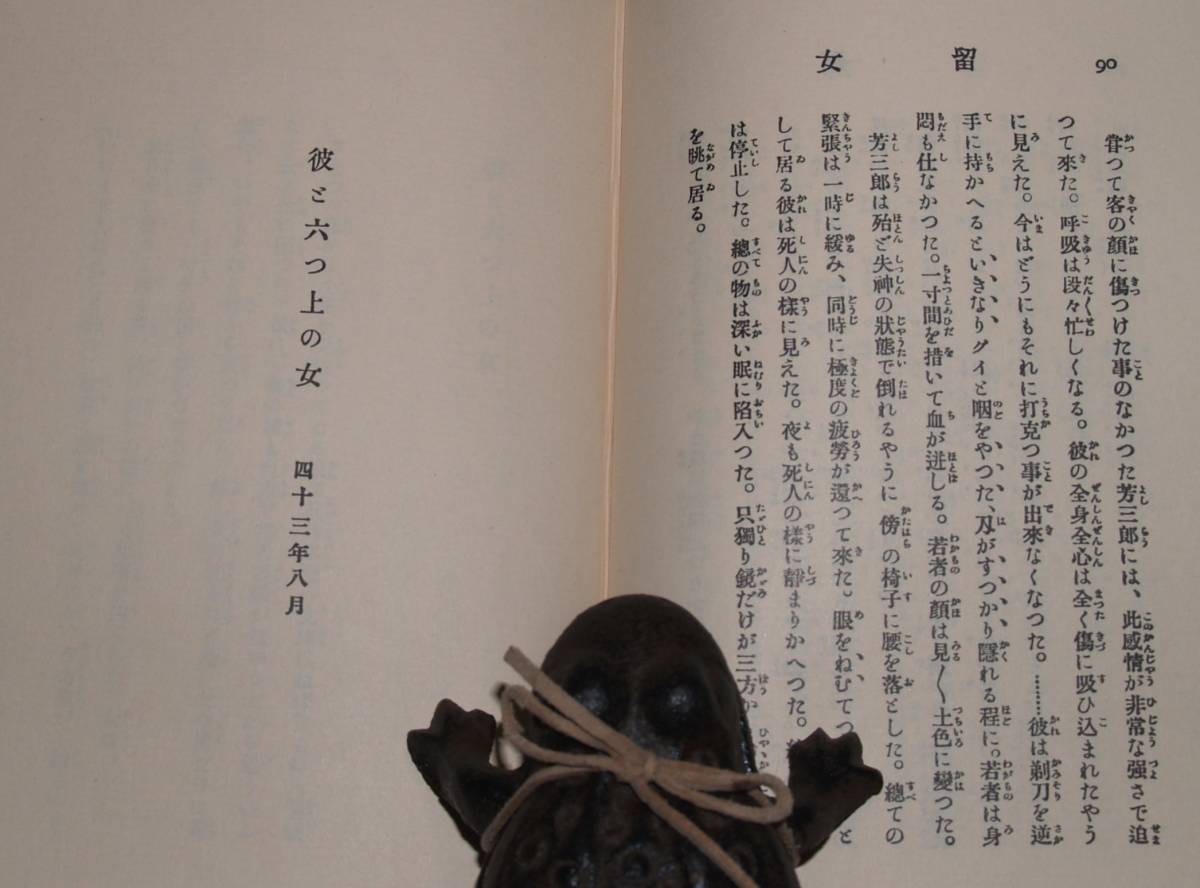 90
留女
甞つて客の顔に傷つけた事のなかつた芳三郎には、此感情が非常な强さで迫
つて來た。呼吸は段々忙しくなる。彼の全身全心は全く傷に吸ひ込まれたやう
に見えた。今はどうにもそれに打克つ事が出來なくなつた。………彼は剃刀を逆
手に持かへるといきなりグイと咽をやつた、刄がすつかり隱れる程に。若者は身
悶も仕なかつた。一寸間を措いて血が迸しる。若者の顔は見〱土色に變つた。
芳三郎は殆ど失神の狀態で倒れるやうに傍の椅子に腰を落とした。總ての
緊張は一時に緩み、同時に極度の疲勞が還つて來た。眼をねむてつ と
して居る彼は死人の樣に見えた。夜も死人の樣に靜まりかへつた。
は停止した。總の物は深い眠に陷入つた。只獨り鏡だけが三方
を眺て居る。
彼と六つ上の女 四十三年八月